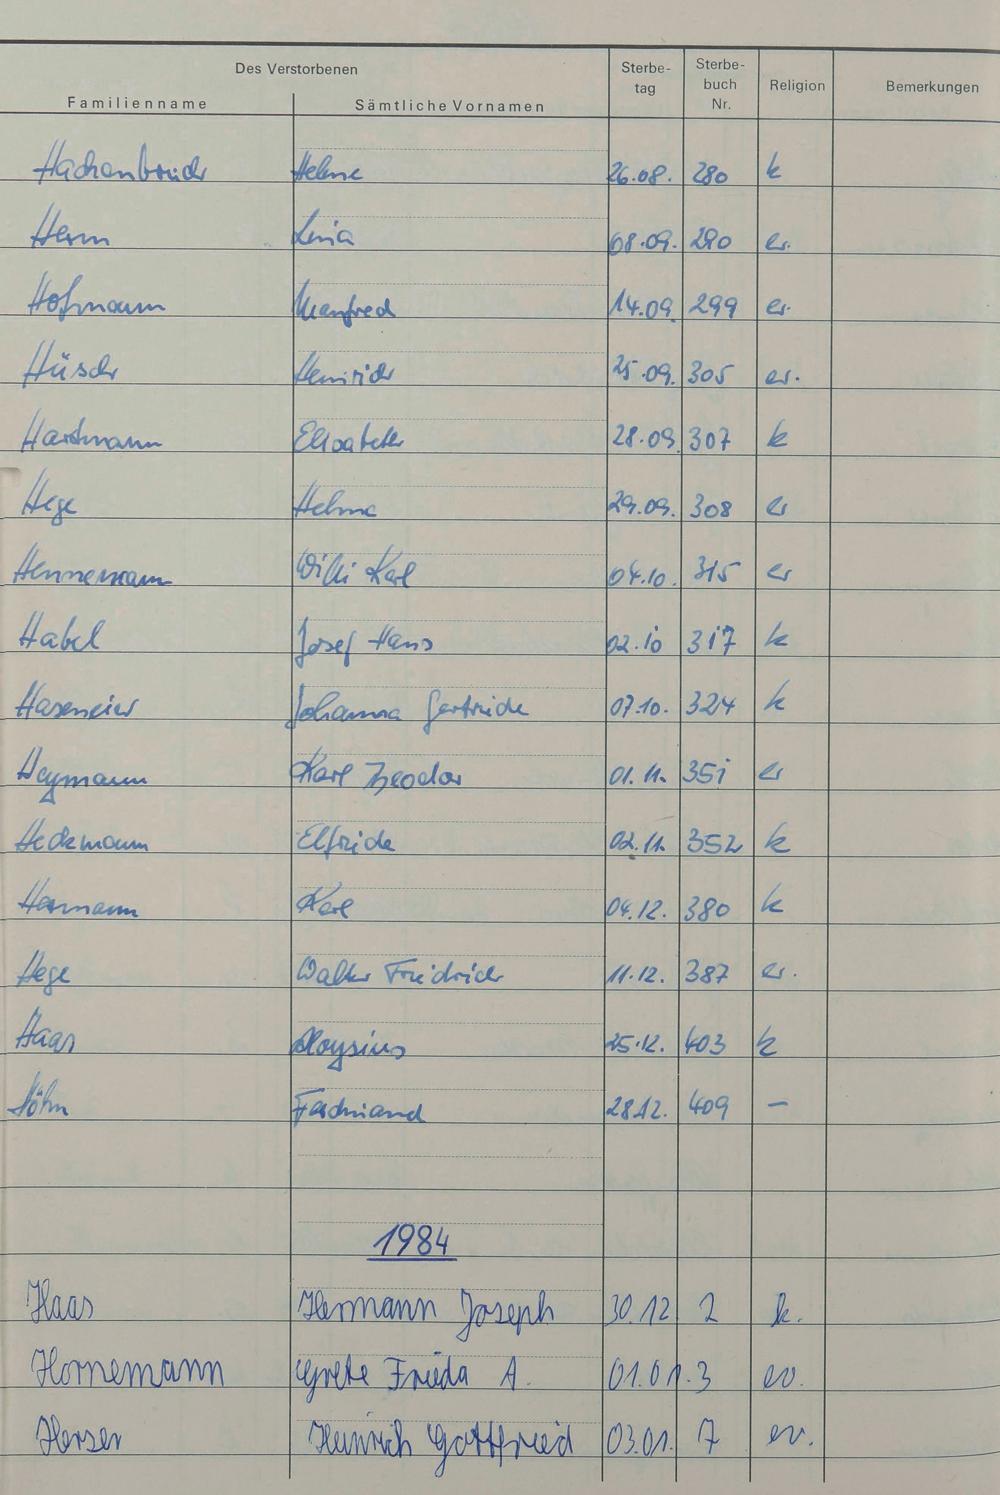 Des Verstorbenen
Familienname Sämtliche Vornamen Sterbe-tag Sterbe-buch Nr. Religion Bemerkungen
Hachenbruch Helene 26.08. 280 k
Herm Lina 08.09. 290 ev.
Hofmann Manfred 14.09. 299 ev.
Hüsch Heinrich 25.09. 305 ev.
Hartmann Elisabeth 28.09. 307 k
Hege Helene 29.09. 308 ev
Hennemann Willi Karl 04.10. 315 ev
Habel Josef Hans 02.10 317 k
Hasemeier Johanna Gertrude 07.10. 324 k
Heymann Karl Theodor 01.11. 351 ev
Heckmann Elfriede 02.11. 352 k
Hermann Karl 04.12. 380 k
Hege Walter Friedrich 11.12. 387 ev.
Haas Aloysius 25.12. 403 k
Höhn Ferdinand 28.12. 409 –
1984
Haas Hermann Joseph 30.12 2 k.
Hornemann Grete Frieda A. 01.01. 3 ev.
Herser Heinrich Gottfried 03.01. 7 ev.